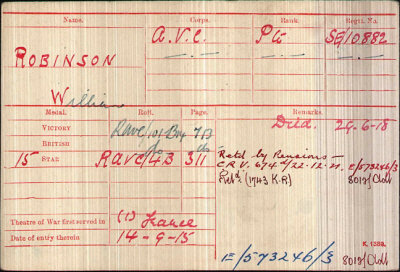 Name. Corps. Rank. Regtl. No.
ROBINSON A.V.C. Pte SE/10882
William
Medal. Roll. Page. Remarks.
VICTORY RAVC/101 B 713 Died. 29-6-18
BRITISH do do
15 STAR RAVC/4B 311 Retd by Pensions
C.R.V. 674 22-12-21. E/573246/3
(1743 K.R) 8019/
Theatre of War first served in (1) France
Date of entry therein 14-9-15
K. 1380.
E/573246/3 8019/